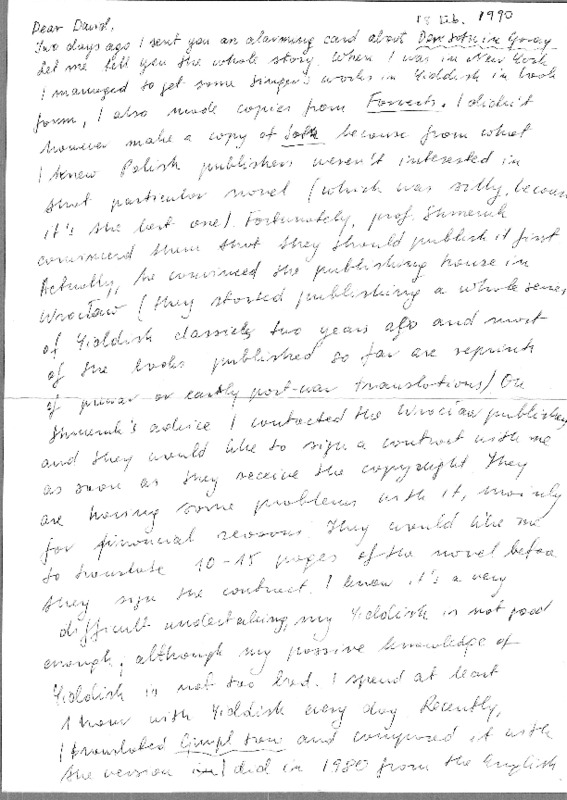 18 Feb. 1990
Dear David,
Two days ago I sent you an alarming card about Der sotn in Goray
Let me tell you the whole story. When I was in New York
I managed to get some Singer's works in Yiddish in book
form, I also made copies from Forverts. I didn't
however make a copy of Sotn because from what
I knew Polish publishers weren't interested in
that particular novel (which was silly, because
it's the best one). Fortunately, prof. Shmeruk
convinced them that they should publish it first
Actually, he convinced the publishing house in
Wrocław (they started publishing a whole series
of Yiddish classics two years ago and most
of the books published so far are reprints
of prewar or early post-war translations) On
Shmeruk's advice I contacted the Wrocław publishing
and they would like to sign a contract with me
as soon as they receive the copyright. They
are having some problems with it, mainly
for financial reasons. They would like me
to translate 10-15 pages of the novel before
they sign the contract. I know it's a very
difficult undertaking, my Yiddish is not good
enough, although my passive knowledge of
Yiddish is not too bad. I spend at least
1 hour with Yiddish every day. Recently,
I translated Gimpl tam and compared it with
the version I did in 1980 from the English